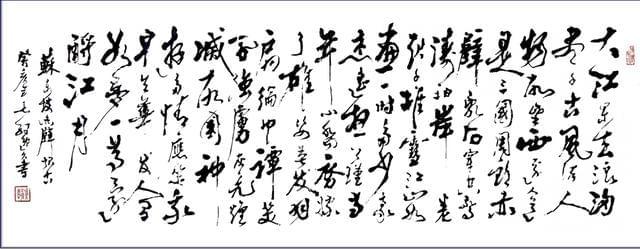 大江東去浪淘
盡千古風流人
物故壘西邊人道
是三國周郎赤
壁亂石穿空驚
濤拍岸卷
起千堆雪江山如
畫一時多少豪
傑遙想公瑾當
年小喬初嫁
了雄姿英發羽
扇綸巾談笑
間強虜灰飛煙
滅故國神
遊多情應笑我
早生華发人間
如夢一尊還
酹江月
蘇東坡赤壁懷古
癸亥年